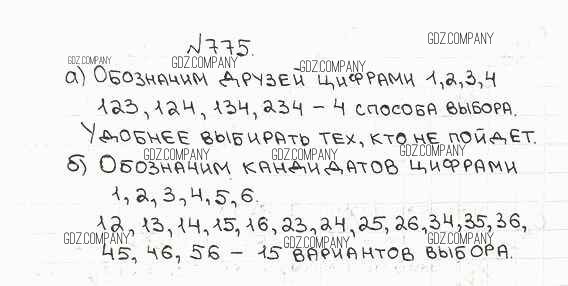 №775.
а) Обозначим друзей цифрами 1,2,3,4
123, 124, 134, 234 – 4 способа выбора.
Удобнее выбирать тех, кто не пойдет.
б) Обозначим кандидатов цифрами
1, 2, 3, 4, 5, 6.
12, 13, 14, 15, 16, 23, 24, 25, 26, 34, 35, 36,
45, 46, 56 – 15 вариантов выбора.
GDZ.COMPANY
GDZ.COMPANY
GDZ.COMPANY
GDZ.COMPANY
GDZ.COMPANY
GDZ.COMPANY
GDZ.COMPANY
GDZ.COMPANY
GDZ.COMPANY
GDZ.COMPANY